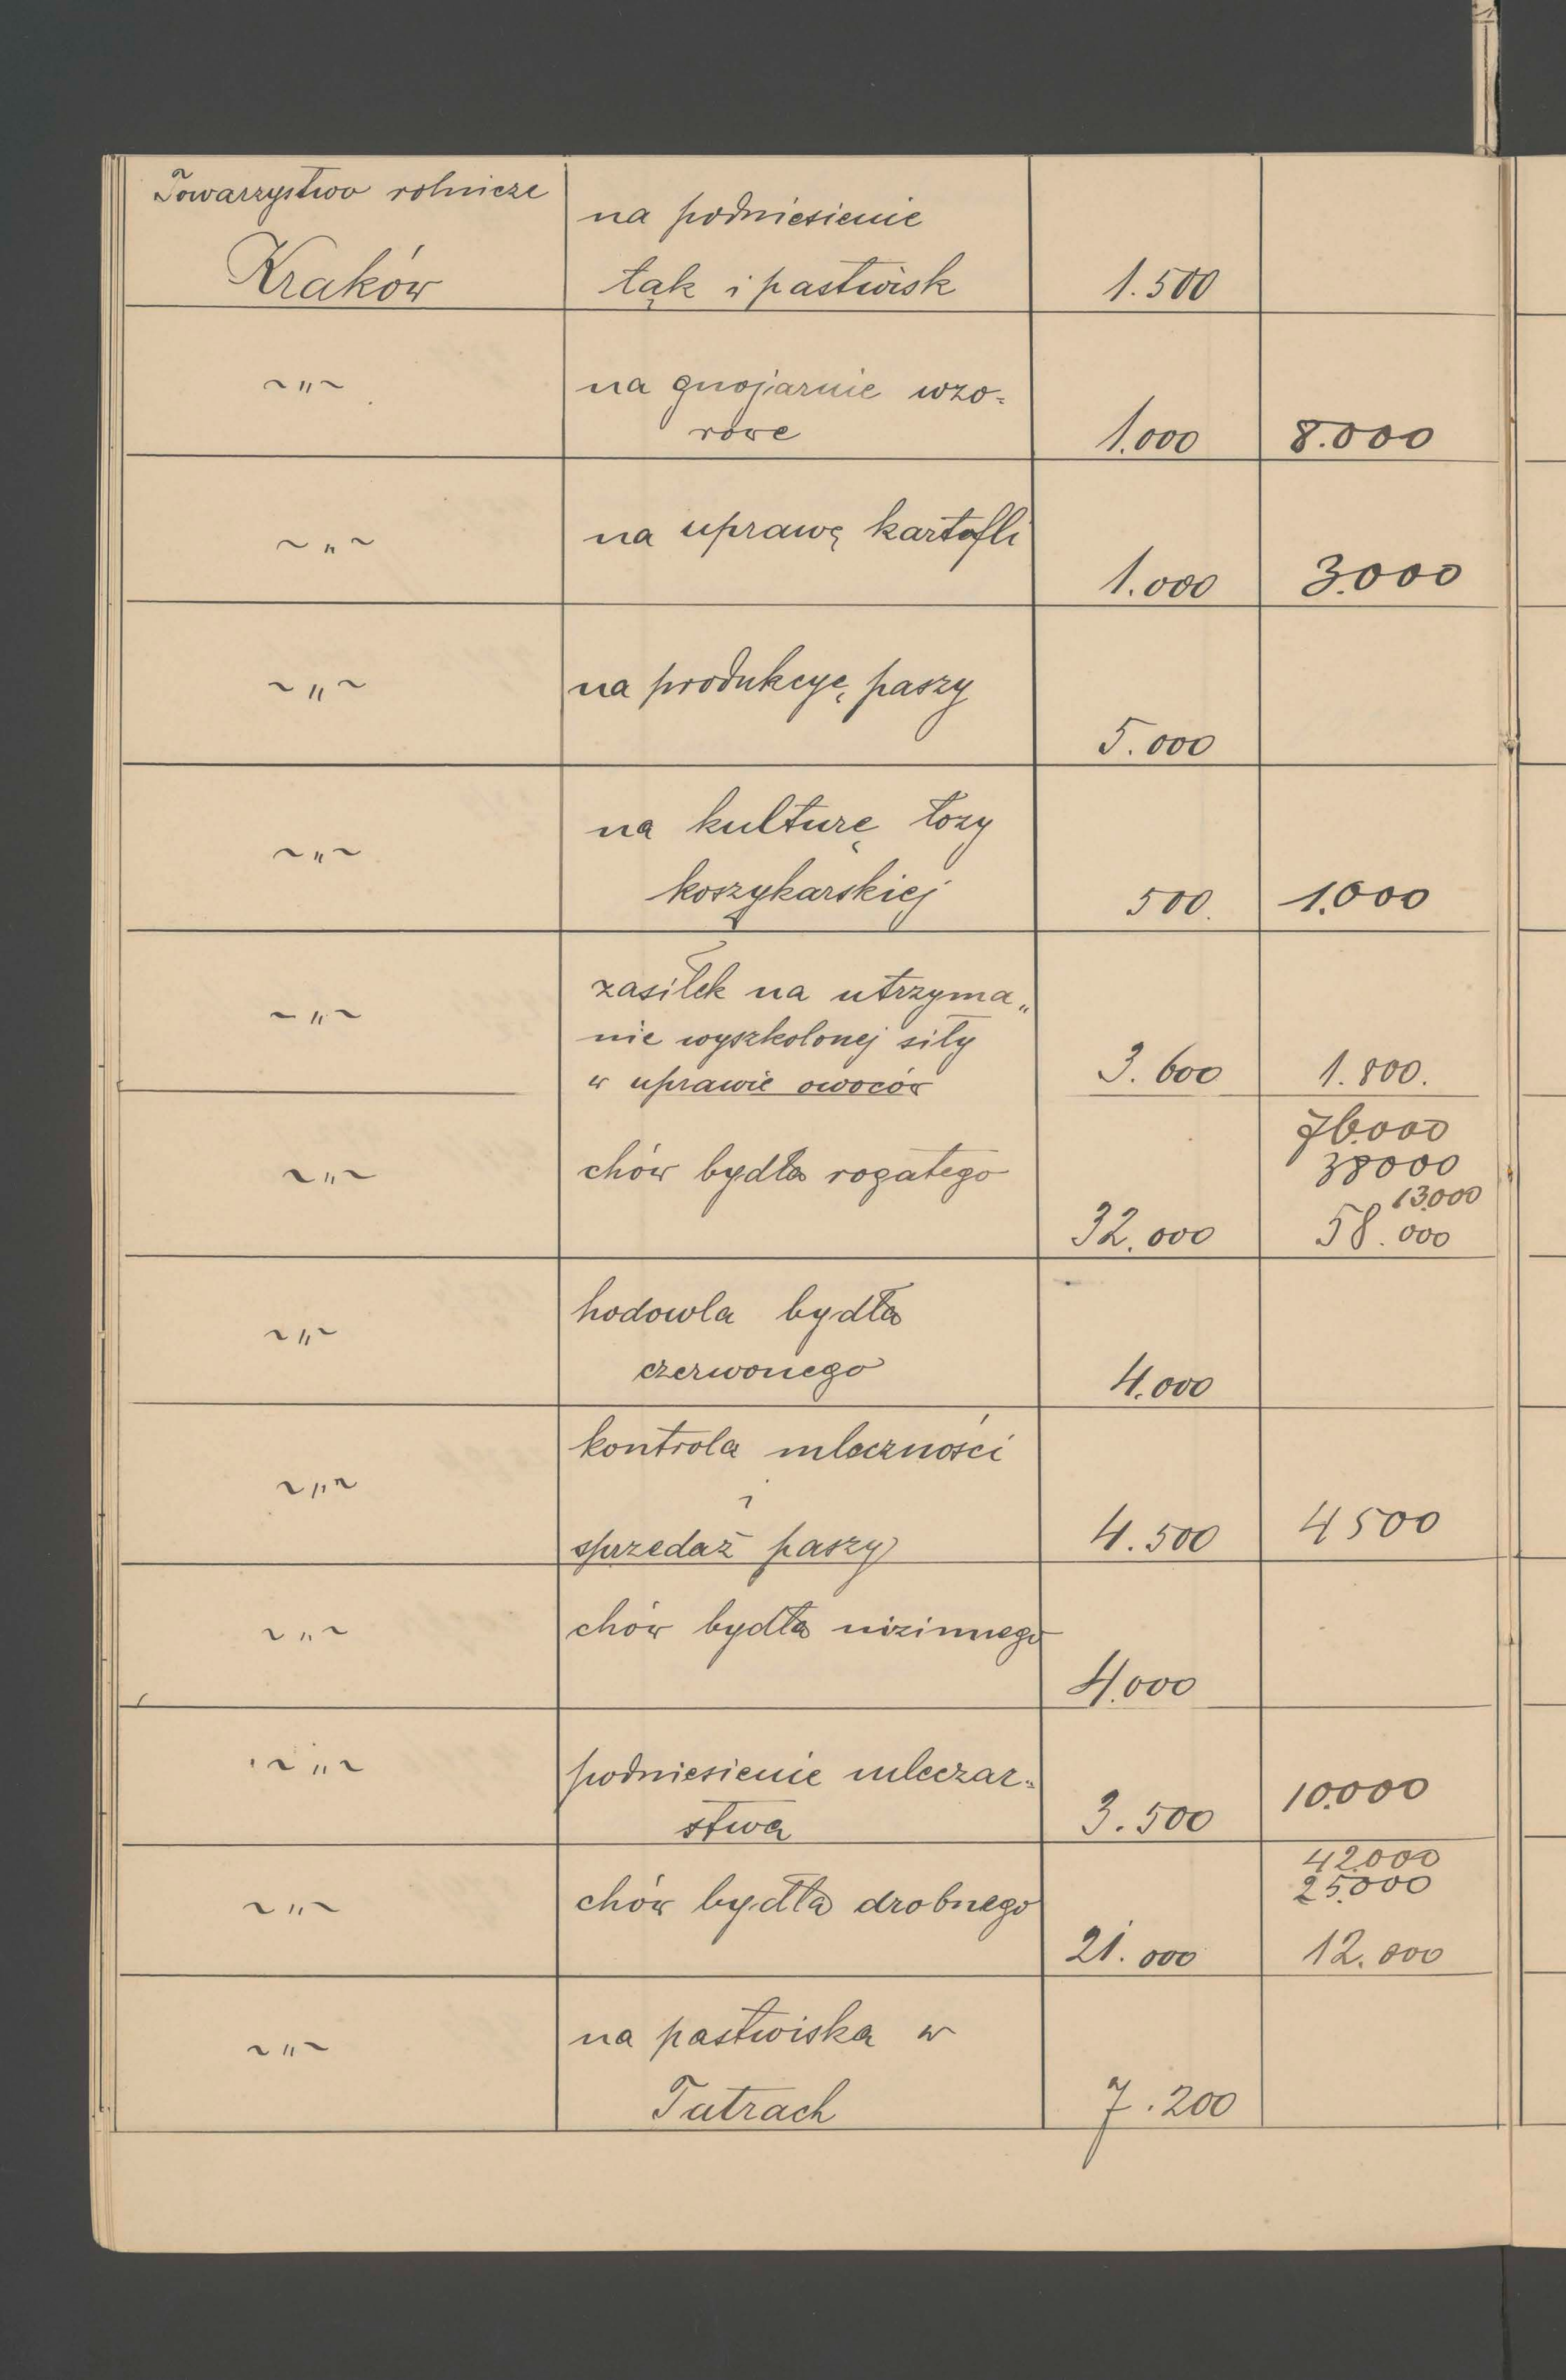 Towarzystwo rolnicze
Kraków
na podniesienie
łąk i pastwisk
1.500
~"~
na gnojarnie wzo-
rowe
1.000
8.000
~"~
na uprawę kartofli
1.000
3.000
~"~
na produkcyę paszy
5.000
~"~
na kulturę łozy
koszykarskiej
500.
1.000
~"~
zasiłek na utrzyma„
nie wyszkolonej siły
w uprawie owoców
3.600
1.800.
~"~
chów bydła rogatego
32.000
76.000
38000
13.000
58.000
~"~
hodowla bydła
czerwonego
4.000
~"~
kontrola mleczności
i
sprzedaż paszy
4.500
4500
~"~
chów bydła nizinnego
4.000
~"~
podniesienie mleczar-
stwa
3.500
10.000
~"~
chów bydła drobnego
21.000
42.000
25.000
12.000
~"~
na pastwiska w
Tatrach
7.200